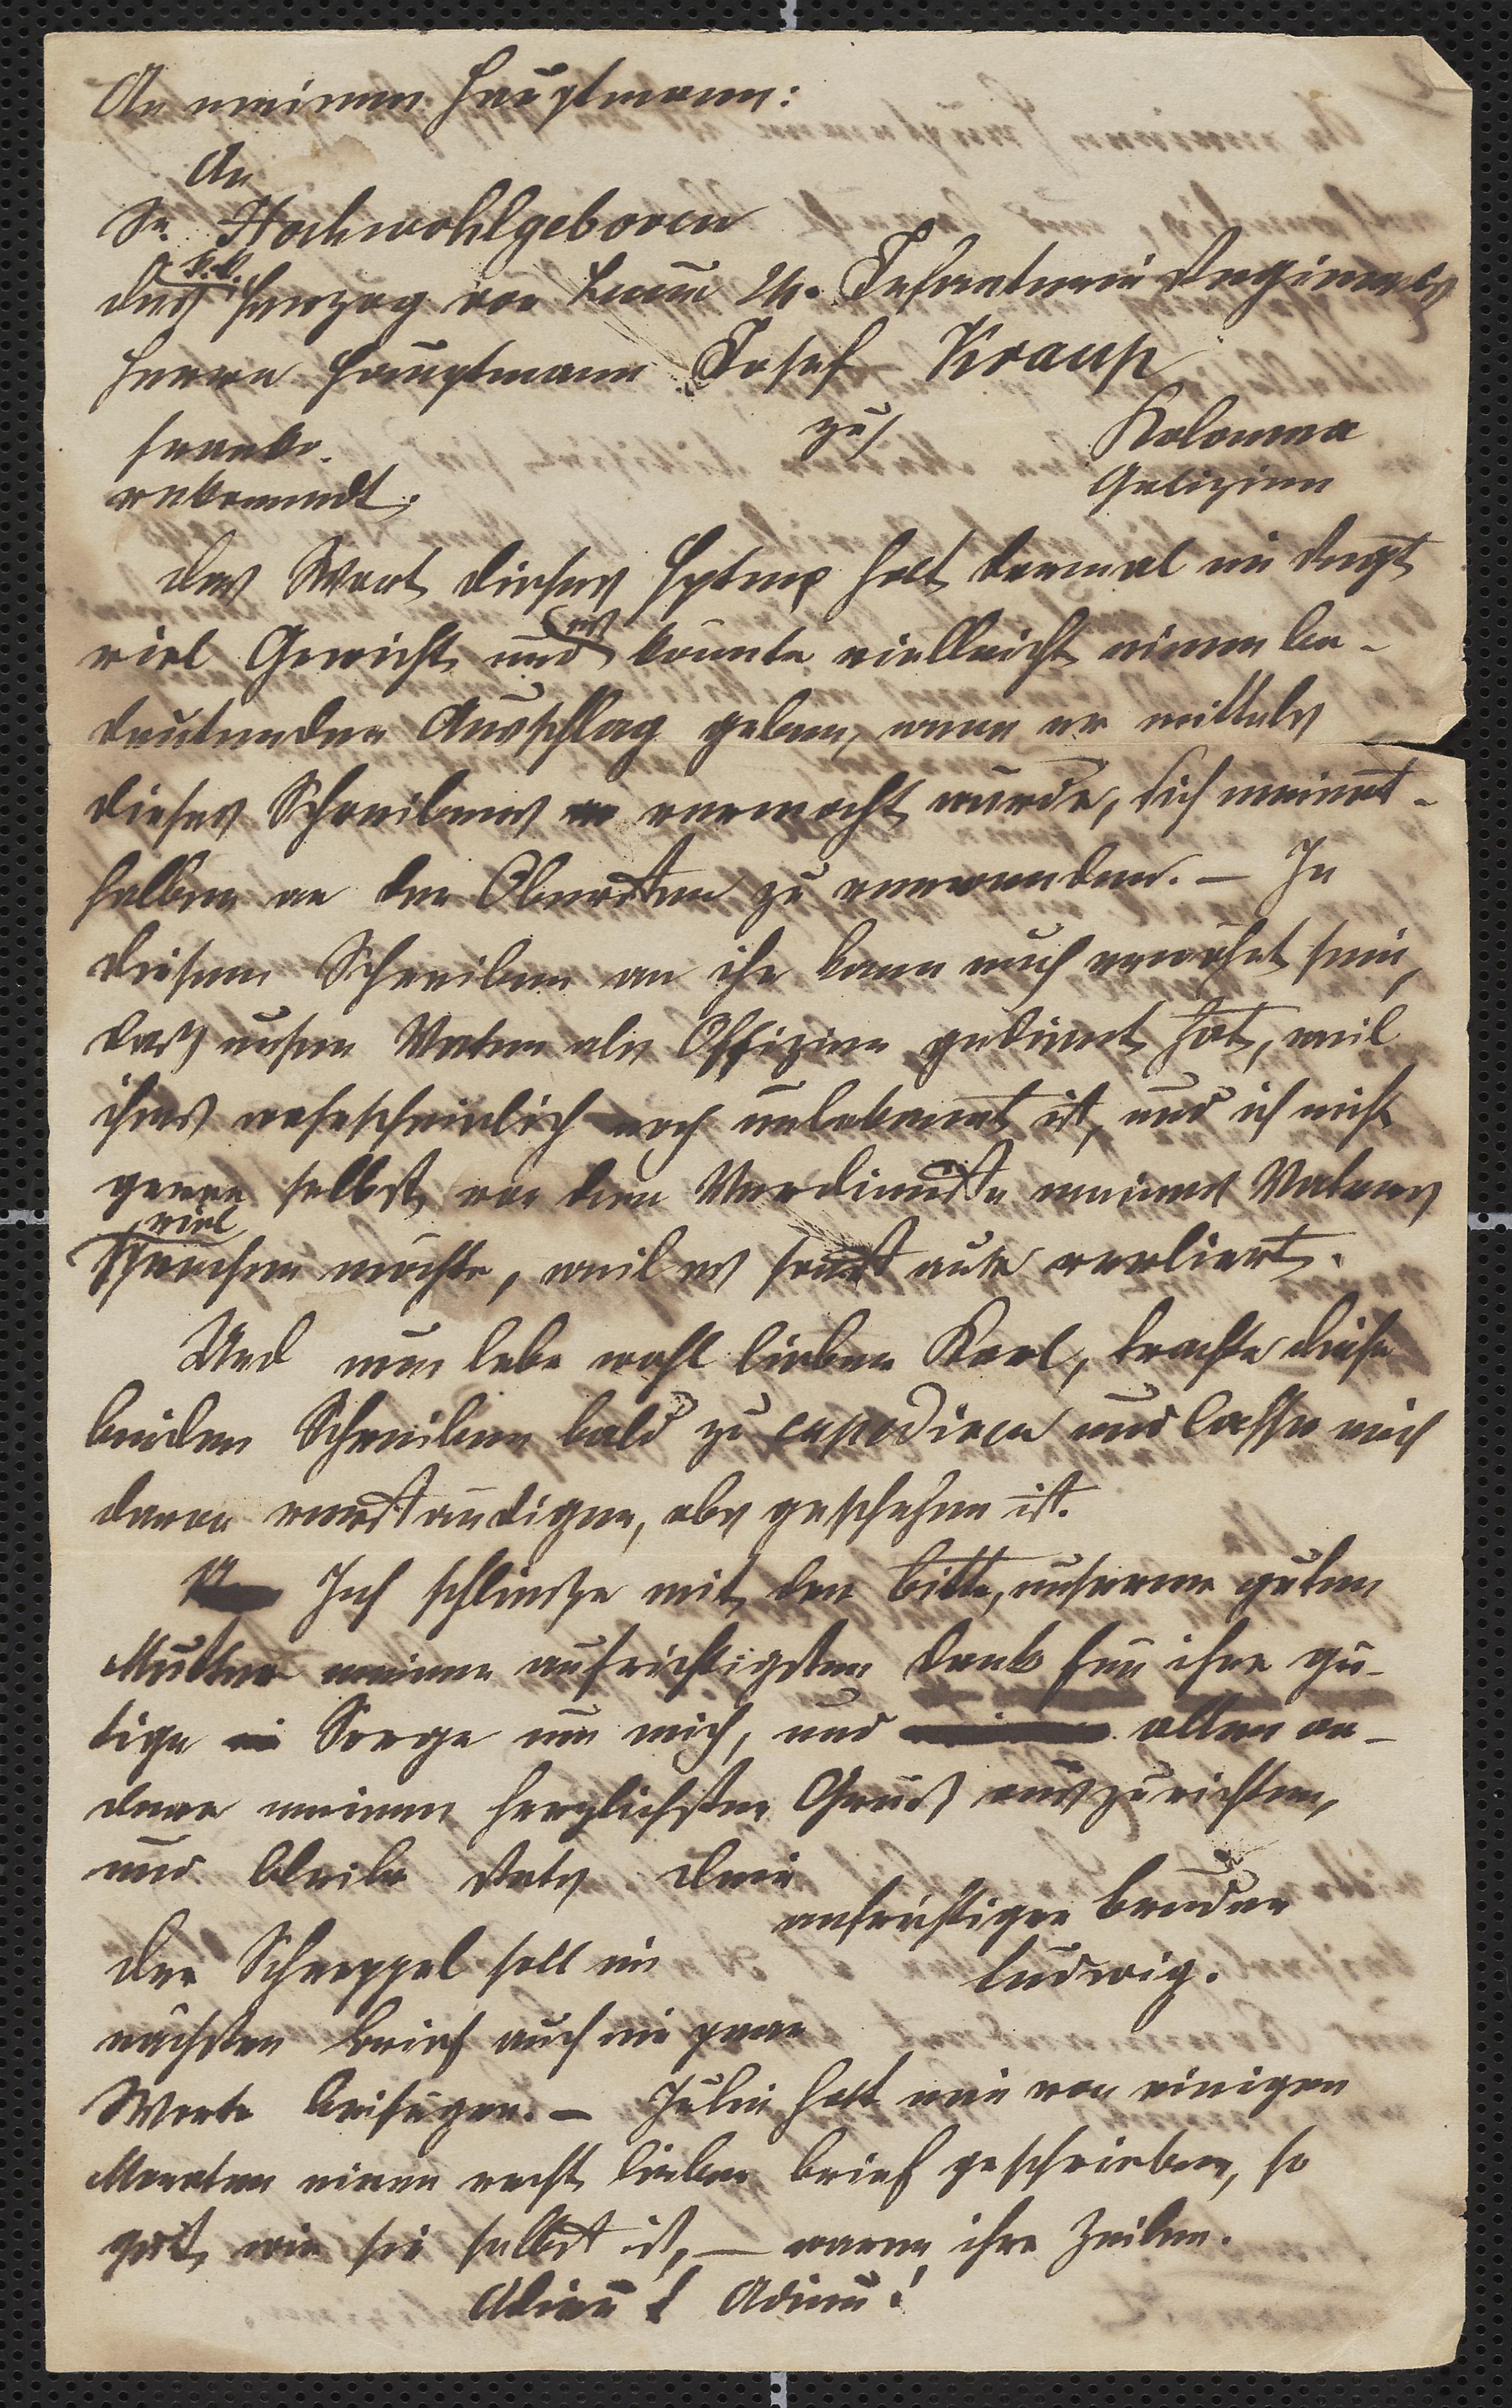 An meinen Hauptmann:
An
Sr. Hochwohlgeboren
des k.k. Herzog von Lucca 24. Infanterie Regiments
Herrn Hauptmann Josef Kraus
zu/ Kolomea
franko. Galizien
rekomandt.
Das Wort dieses Hptms hat dermal im Regt
viel Gewicht und es könnte vielleicht einen be-
deutenden Ausschlag geben, wenn er mittels
dieses Schreibens vermocht würde, sich meinet-
halben an den Obersten zu verwenden. – In
diesem Schreiben an ihn kann auch erwähnt sein,
daß unser Vater als Offizier gedient hat, weil
ihm's wahrscheinlich noch unbekannt ist, und ich nicht
gerne selbst von dem Verdienste meines Vaters
viel sprechen möchte, weil es sonst verliert.
Und nun lebe wohl lieber Karl, trachte diese
beiden Schreiben bald zu expediren und lasse mich
davon verständigen, obs geschehen ist.
Ich schließe mit der Bitte, unserer guten
Mutter meinen aufrichtigsten Dank für ihre gü-
tige Sorge um mich, und allen an-
dern meinen herzlichsten Gruß auszurichten,
und bleibe stets Dein
aufrichtiger Bruder
Ludwig.
Der Schnappel soll im
nächsten Brief auch ein paar
Worte beifügen. – Julie hat mir vor einigen
Monaten einen recht lieben Brief geschrieben, so
gut, wie sie selbst ist, – waren ihre Zeilen.
Adieu Adieu!